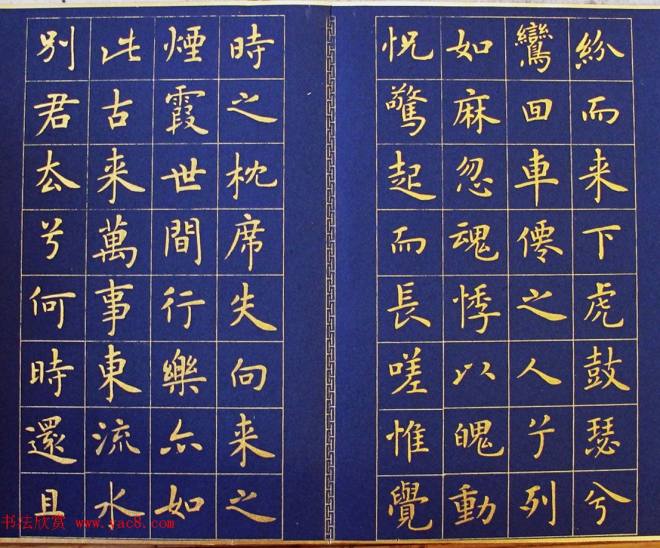 紛而来下虎鼓瑟兮
鸞回車僊之人兮列
如麻忽魂悸以魄動
怳驚起而長嗟惟覺
時之枕席失向来之
煙霞世間行樂亦如
此古来萬事東流水
別君去兮何時還且
书法欣赏 www.yac8.com